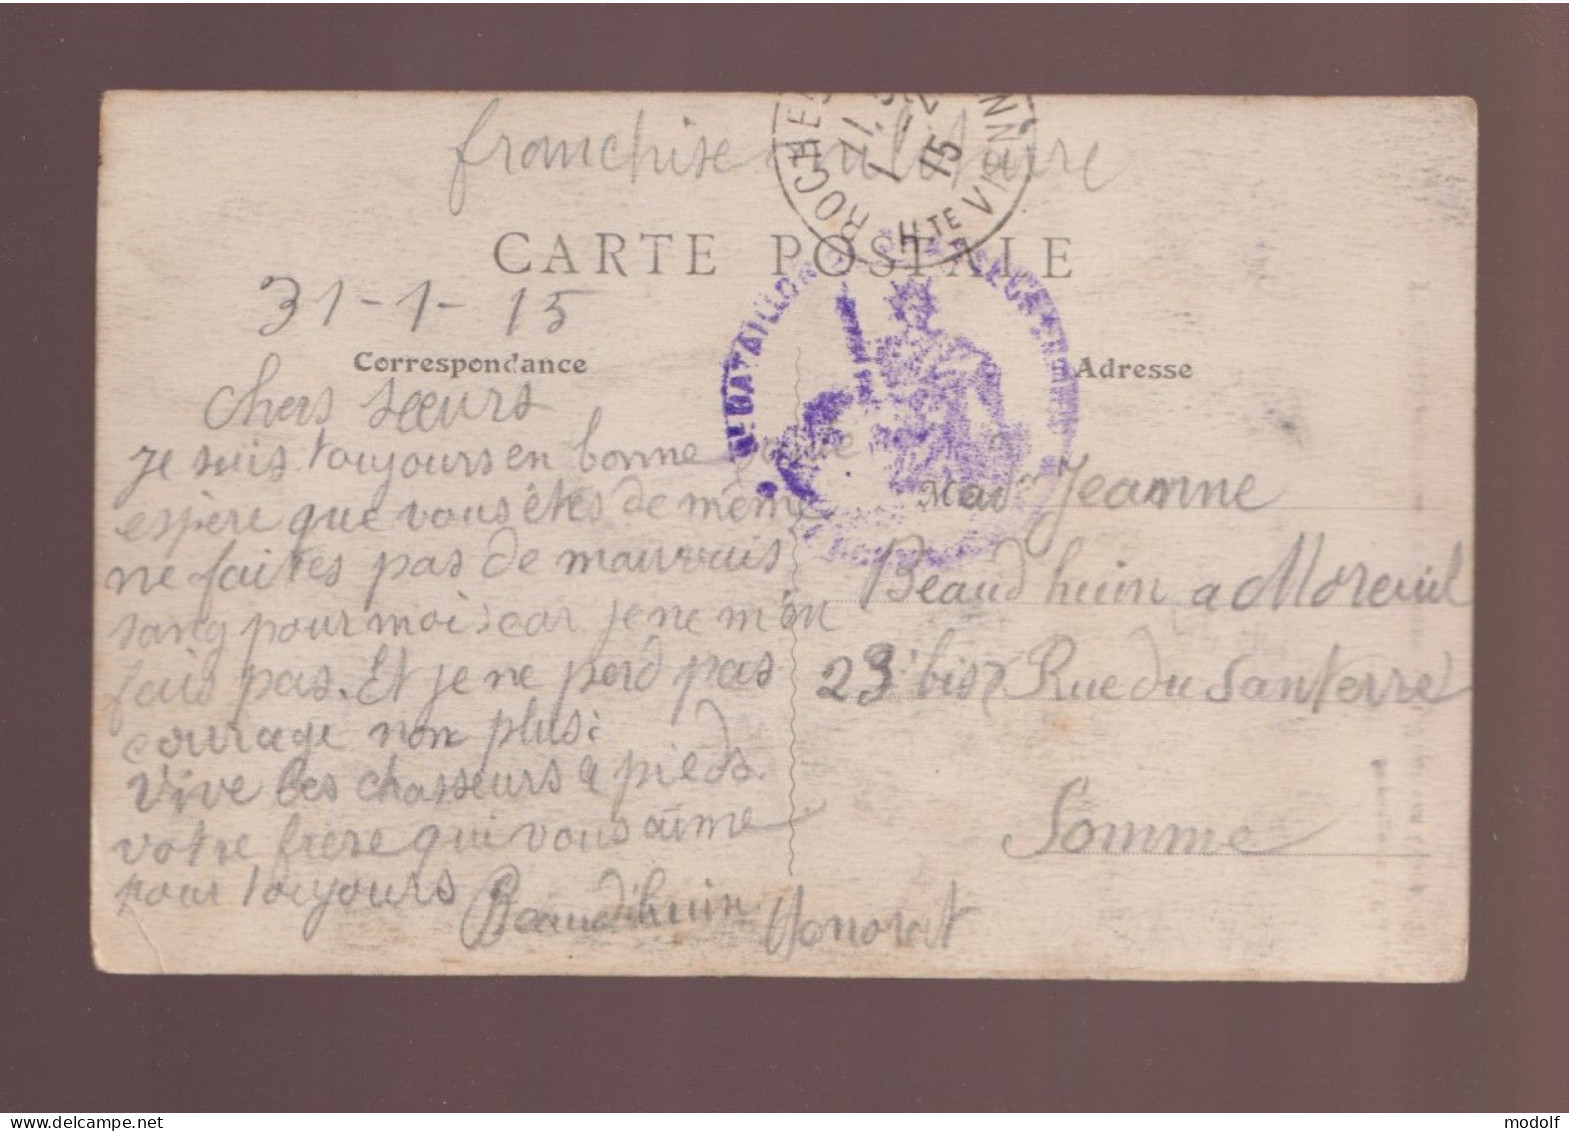 franchise militaire
ROCHE
H.TE VIENN
15
CARTE POSTALE
31-1-15
Correspondance
Chers sœurs
je suis toujours en bonne santé
espère que vous êtes de même
ne faites pas de mauvais
sang pour moi car je ne m'en
fais pas. Et je ne perd pas
courage non plus:
Vive les chasseurs a pieds.
votre frère qui vous aime
pour toujours Beaud'huin Honorat
BATAILLON
Adresse
Mad Jeanne
Beaud huin a Moreuil
23 bis Rue du Santerre
Somme
www.delcampe.net
modolf